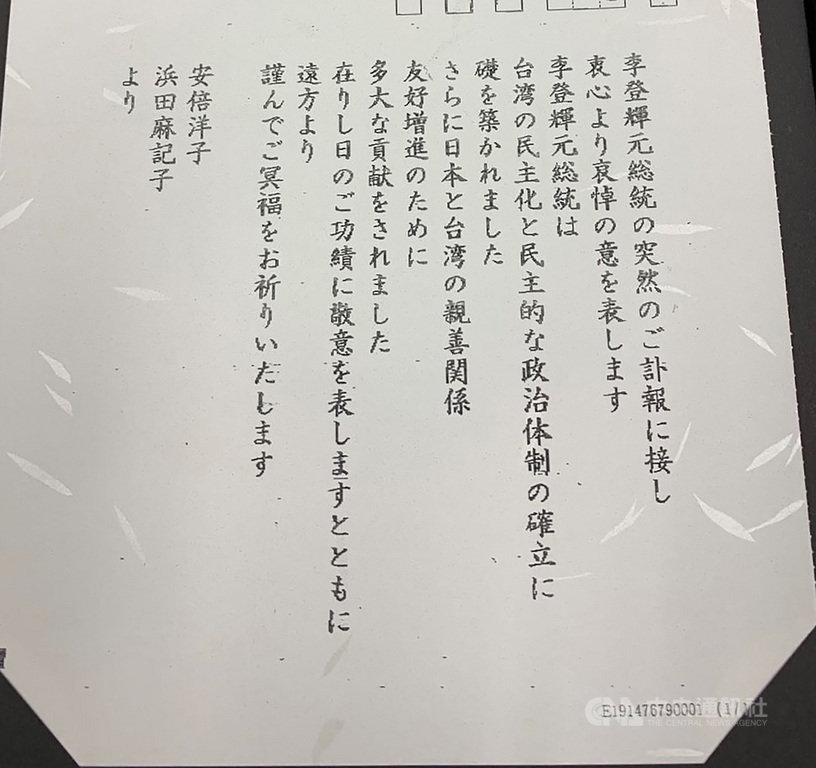 李登輝元総統の突然のご訃報に接し
衷心より哀悼の意を表します
李登輝元総統は
台湾の民主化と民主的な政治体制の確立に
礎を築かれました
さらに日本と台湾の親善関係
友好増進のために
多大な貢献をされました
在りし日のご功績に敬意を表しますとともに
遠方より
謹んでご冥福をお祈りいたします
安倍洋子
浜田麻記子
より
E191476790001 (1/
中央通訊社
THE CENTRAL NEWS AGENCY